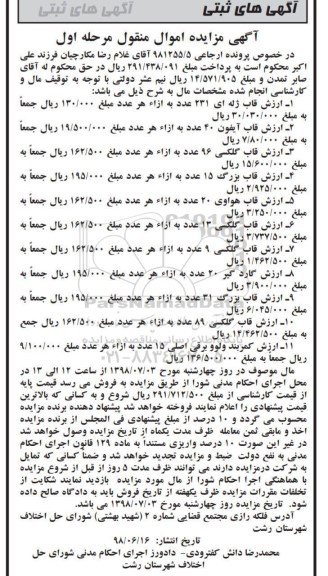 آگهی های ثبتی
آگهی های ثبتی
آگهی مزایده اموال منقول مرحله اول
در خصوص پرونده ارجاعی ۹۸۱۲۵۵/۵ آقای غلام رضا مکارچیان فرزند علی
اکبر محکوم است به پرداخت مبلغ ۲۹۱/۴۳۸/۰۹۱ ریال در حق محکوم له آقای
صابر تمدن و مبلغ ۱۴/۵۷۱/۹۰۵ ریال نیم عشر دولتی با توجه به توقیف مال و
کارشناسی انجام شده مشخصات مال به شرح ذیل می باشد:
۱ـ ارزش قاب ژله ای ۲۳۱ عدد به ازاء هر عدد مبلغ ۱۳۰/۰۰۰ ریال جمعاً
به مبلغ ۳۰/۰۳۰/۰۰۰ ریال
۲ـ ارزش قاب آیفون ۴۰ عدد به ازاء هر عدد مبلغ ۱۹/۵۰۰/۰۰۰ ریال جمعاً
مبلغ ۷/۸۰۰/۰۰۰ ریال
۳ـ ارزش قاب گلکسی ۹۶ عدد به ازاء هر عدد مبلغ ۱۶۲/۵۰۰ ریال جمعاً به
مبلغ ۱۵/۶۰۰/۰۰۰ ریال
۴ـ ارزش قاب بزرگ ۱۵ عدد به ازاء هر عدد مبلغ ۱۹۵/۰۰۰ ریال جمعاً به
مبلغ ۲/۹۲۵/۰۰۰ ریال
۵ـ ارزش قاب هواوی ۲۰ عدد به ازاء هر عدد مبلغ ۱۶۲/۵۰۰ ریال جمعاً به
مبلغ ۳/۲۵۰/۰۰۰ ریال
۶ـ ارزش قاب گلکسی عدد به ازاء هر عدد مبلغ ۱۶۲/۵۰۰ ریال جمعاً به
مبلغ ۳/۷۳۷/۵۰۰ ریال
۷ـ ارزش قاب گلکسی ۹ عدد به ازاء هر عدد مبلغ ۱۶۲/۵۰۰ ریال جمعاً به
مبلغ ۱/۴۶۲/۵۰۰ ریال
۸ـ ارزش گارد گیر ۲۰ عدد به ازاء هر عدد مبلغ ۱۹۵/۰۰۰ ریال جمعاً به
مبلغ ۳/۹۰۰/۰۰۰ ریال
۹ـ ارزش قاب بزرگ ۳۱ عدد به ازاء هر عدد مبلغ ۱۹۵/۰۰۰ ریال جمعاً به
مبلغ ۶/۰۴۵/۰۰۰ ریال
۱۰ـ ارزش قاب گلکسی ۸۹ عدد به ازاء هر عدد مبلغ ۱۶۲/۵۰۰ ریال جمع
به مبلغ ۱۴/۴۶۲/۵۰۰ ریال
۱۱ـ ارزش کمربند ولوو برقی اصلی ۱۵ عدد به ازاء هر عدد مبلغ ۹/۱۰۰/۰۰۰
ریال جمعاً به مبلغ ۱۳۶/۵۰۰/۰۰۰ ریال
مال موصوف در روز چهارشنبه مورخ ۱۳۹۸/۰۷/۰۳ از ساعت ۱۲ الی ۱۳ در
محل اجرای احکام مدنی شورا از طریق مزایده به فروش می رسد قیمت پایه
از قیمت کارشناسی از مبلغ ۲۹۱/۷۱۲/۵۰۰ ریال شروع و به کسانی که بالاترین
قیمت پیشنهادی را اعلام نمایند فروخته خواهد شد پیشنهاد دهنده برنده مزایده
محسوب می گردد و ۱۰ درصد از مبلغ پیشنهادی فی المجلس از برنده مزایده
اخذ و مابقی ثمن معامله ظرف مدت یکماه از تاریخ مزایده وصول خواهد شد
در غیر این صورت ۱۰ درصد واریزی مستنداً به ماده ۱۲۹ قانون اجرای احکام
مدنی به نفع دولت ضبط و مزایده تجدید خواهد شد و ضمناً کسانی که تمایل
به شرکت درمزایده دارند می توانند ظرف مدت ۵ روز از قبل از شروع مزایده
با هماهنگی اجرا احکام شورا از مال مورد مزایده بازدید نمایند شکایت از
تخلفات مقررات مزایده ظرف یکهفته از تاریخ فروش باید به دادگاه صالح داده
شود. تاریخ مزایده روز چهارشنبه مورخ ۱۳۹۸/۰۷/۰۳ می باشد.
آدرس فلکه رازی مجتمع قضایی شماره ۲ (شهید بهشتی) شورای حل اختلاف
شهرستان رشت
تاریخ انتشار: ۹۸/۰۶/۱۶
محمدرضا دانش کفترودی- دادورز اجرای احکام مدنی شورای حل
اختلاف شهرستان رشت